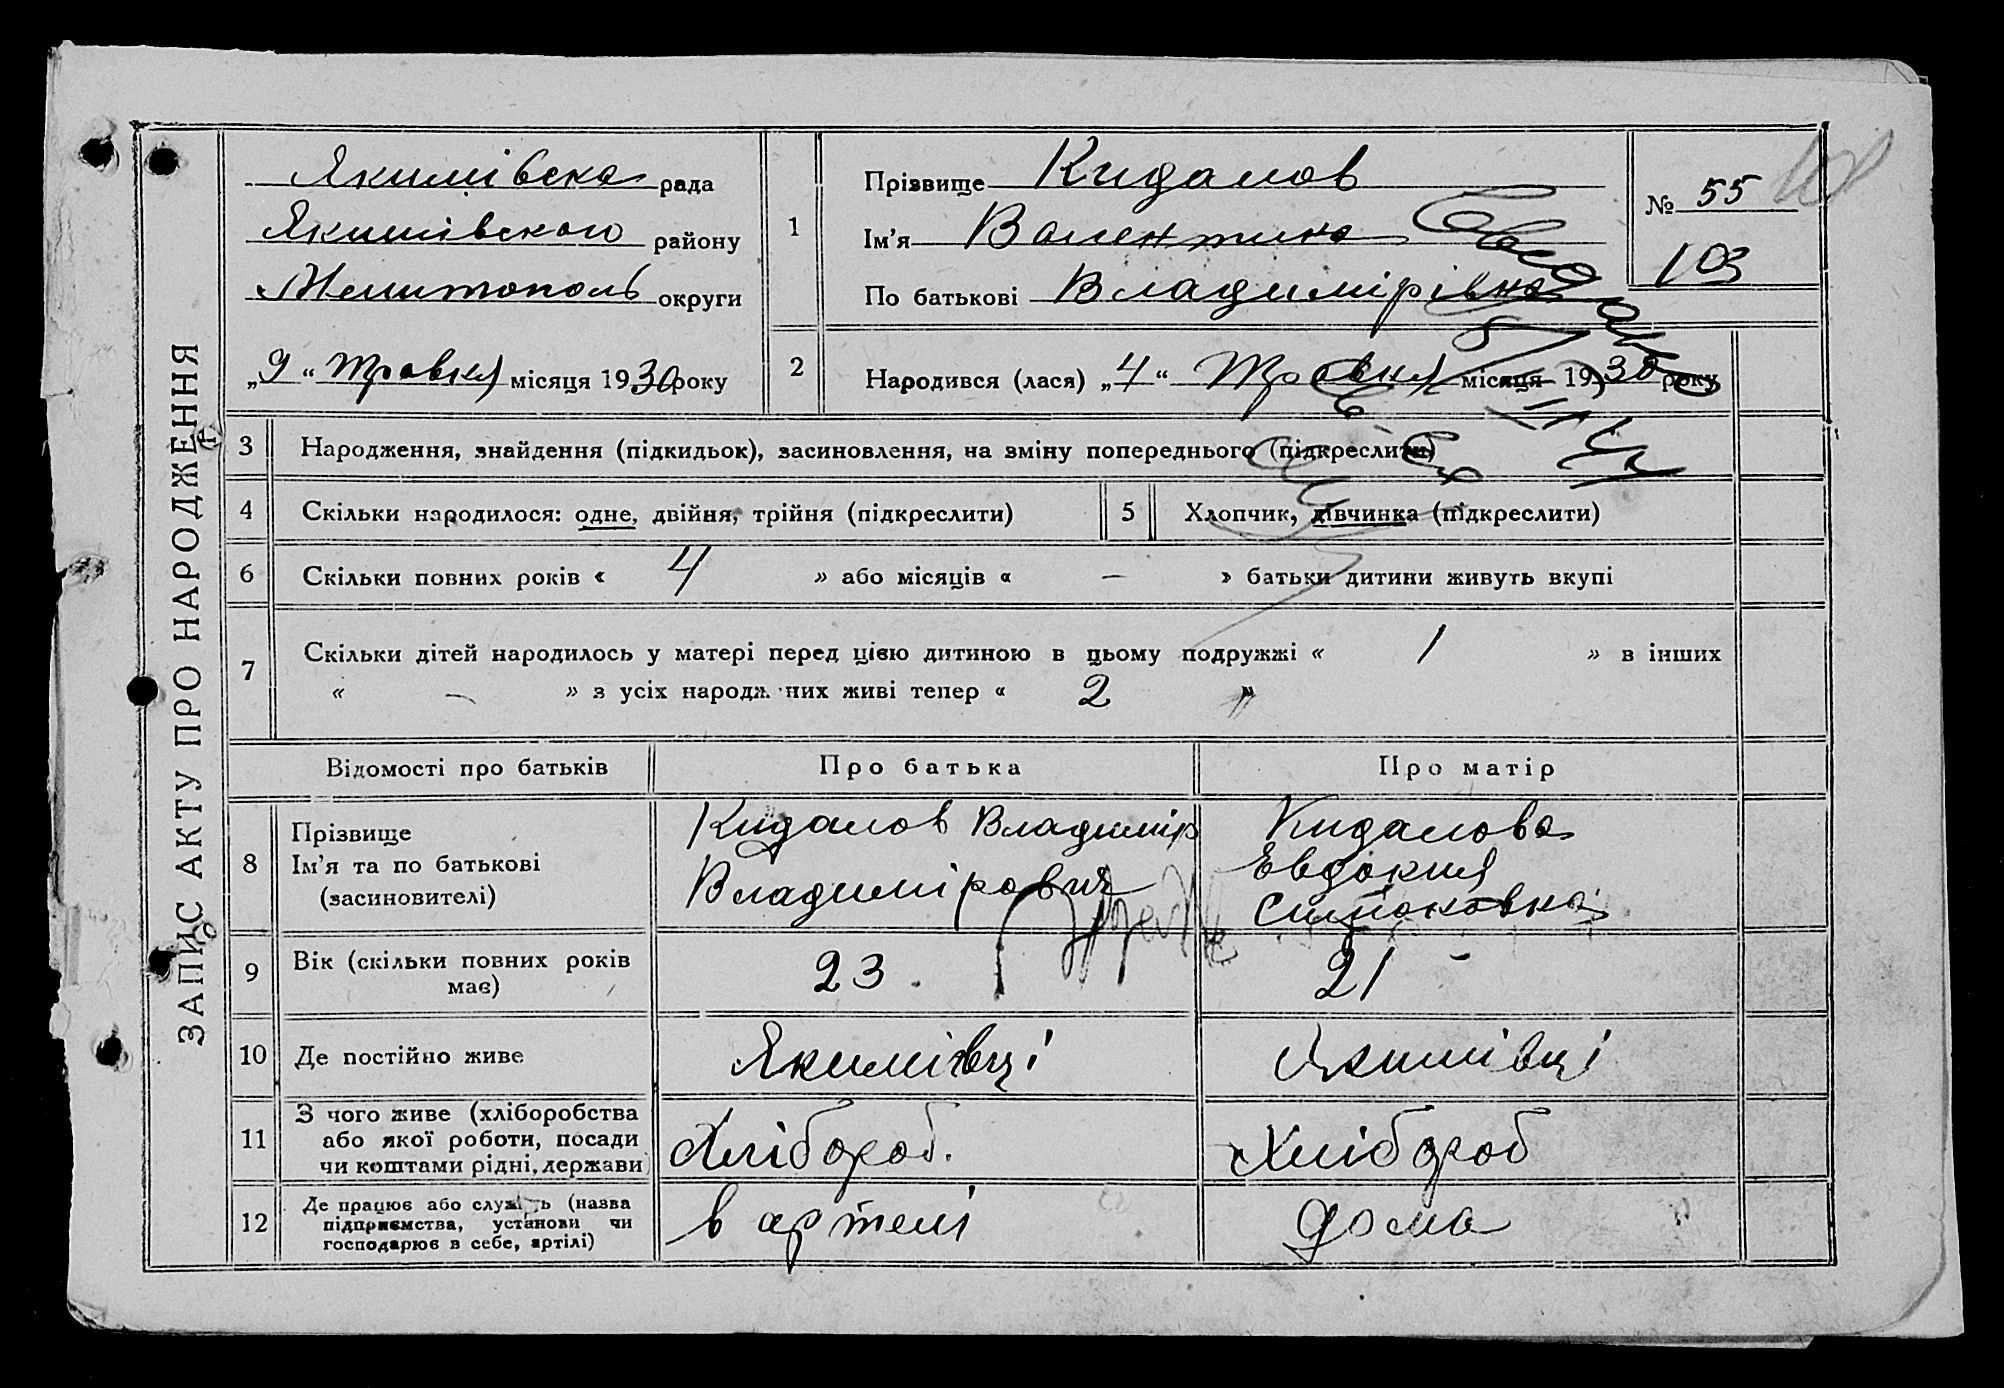 ЗАПИС АКТУ ПРО НАРОДЖЕННЯ
Якимівська рада
Якимівского району
Мелитополь округи
„9“ Травня місяця 1930 року
1
Прізвище Кидалов
Ім'я Валентина
По батькові Владимірівна
№ 55
103
2
Народився (лася) „4“ Травня місяця 1930 року
3 Народження, знайдення (підкидьок), засиновлення, на зміну попереднього (підкреслити)
4 Скільки народилося: одне, двійня, трійня (підкреслити)
5 Хлопчик, дівчинка (підкреслити)
6 Скільки повних років « 4 » або місяців « — » батьки дитини живуть вкупі
7 Скільки дітей народилось у матері перед цією дитиною в цьому подружжі « 1 » в інших
« – » з усіх народж них живі тепер « 2 »
Відомості про батьків Про батька Про матір
8 Прізвище
Ім'я та по батькові
(засиновителі)
Кидалов Владимір
Владимірович
Кидалова
Евдокия
9 Вік (скільки повних років
має)
23
21
10 Де постійно живе Якимівці Якимівці
11 З чого живе (хліборобства
або якої роботи, посади
чи коштами рідні, держави)
Хлібороб.
Хлібороб
12 Де працює або служить (назва
підприємства, установи чи
господарює в себе, артілі)
в артелі
дома